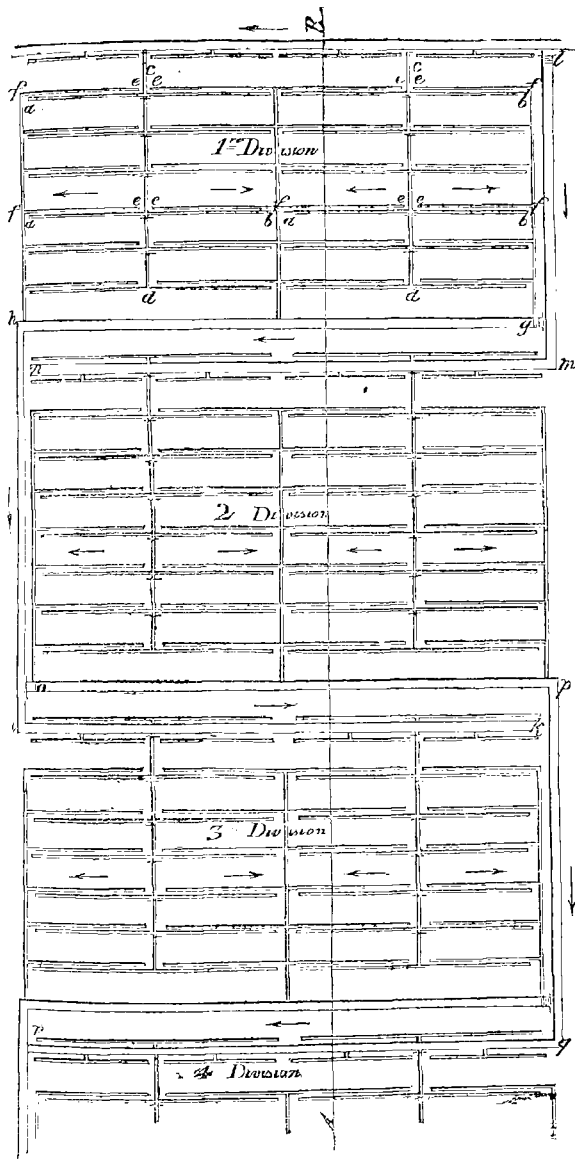 B
c c l
f e e e e f
a b
1re Division
f e e f e e f
a b a b
d d
h g
n m
2 Division
o p
k
3 Division
r q
4 Division
A